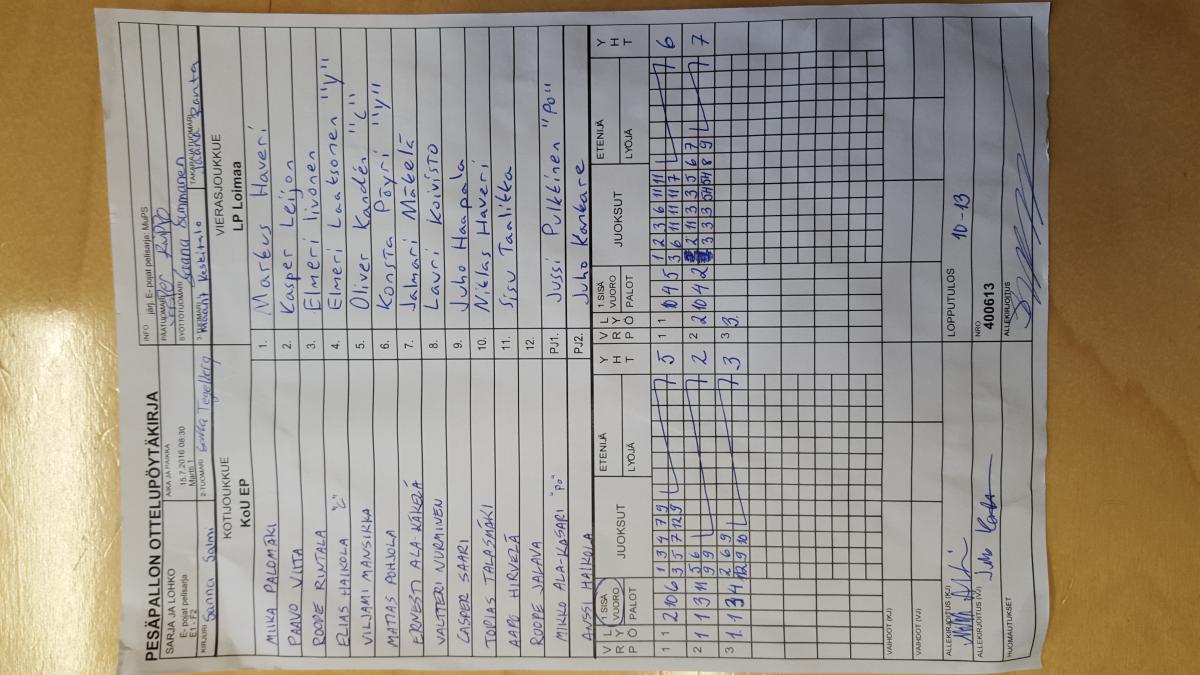 PESÄPALLON OTTELUPÖYTÄKIRJA
SARJA JA LOHKO
E- pojat pelisarja
E1 - F2
AIKA JA PAIKKA
15.7.2016 08:30
Martti 1
INFO järj. E- pojat pelisarja: MuPS
PÄÄTUOMARI
SYÖTTÖTUOMARI
KIRJURI Sanna Salmi
2-TUOMARI
3-TUOMARI Maarit Keskitalo
TAKARAJATUOMARI Jaana Ranta
KOTIJOUKKUE
KoU EP
VIERASJOUKKUE
LP Loimaa
MIIKA PALOMÄKI 1. Markus Haveri
PAAVO VIITA 2. Kasper Leijon
ROOPE RINTALA 3. Elmeri Iivonen
ELIAS HAIKOLA "C" 4. Elmeri Laaksonen "V"
VILJAMI MANSIKKA 5. Oliver Kandén "C"
MATIAS POHJOLA 6. Konsta Pöyri "V"
ERNESTI ALA-KÄKELÄ 7. Jalmari Mäkelä
VALTTERI NURMINEN 8. Lauri Koivisto
CASPER SAARI 9. Juho Haapala
TOPIAS TALASMÄKI 10. Niklas Haveri
AAPO HIRVELÄ 11. Sisu Taalikka
ROOPE JALAVA 12.
MIKKO ALA-KASARI "PO" PJ1. Jussi Pulkkinen "Po"
ANSSI HAIKOLA PJ2. Juho Kankare
V R L Y Ö 1.SISÄ VUORO PALOT JUOKSUT ETENIJÄ LYÖJÄ Y H T
V R L Y Ö 1.SISÄ VUORO PALOT JUOKSUT ETENIJÄ LYÖJÄ Y H T
1 1 2 10 6 1 3 4 7 9 5
3 5 7 12 9
1 1 10 4 5 1 2 3 6 11 11 6
3 6 11 11 11 7
2 1 1 3 11 5 6 2
9 9
2 2 10 4 2 7
3 1. 1 3 4 2 6 9 3
12 9 10
3 3.
VAIHDOT (KJ)
VAIHDOT (VJ)
ALLEKIRJOITUS (KJ)
LOPPUTULOS 10-13
ALLEKIRJOITUS (VJ)
NRO
400613
HUOMAUTUKSET
ALLEKIRJOITUS